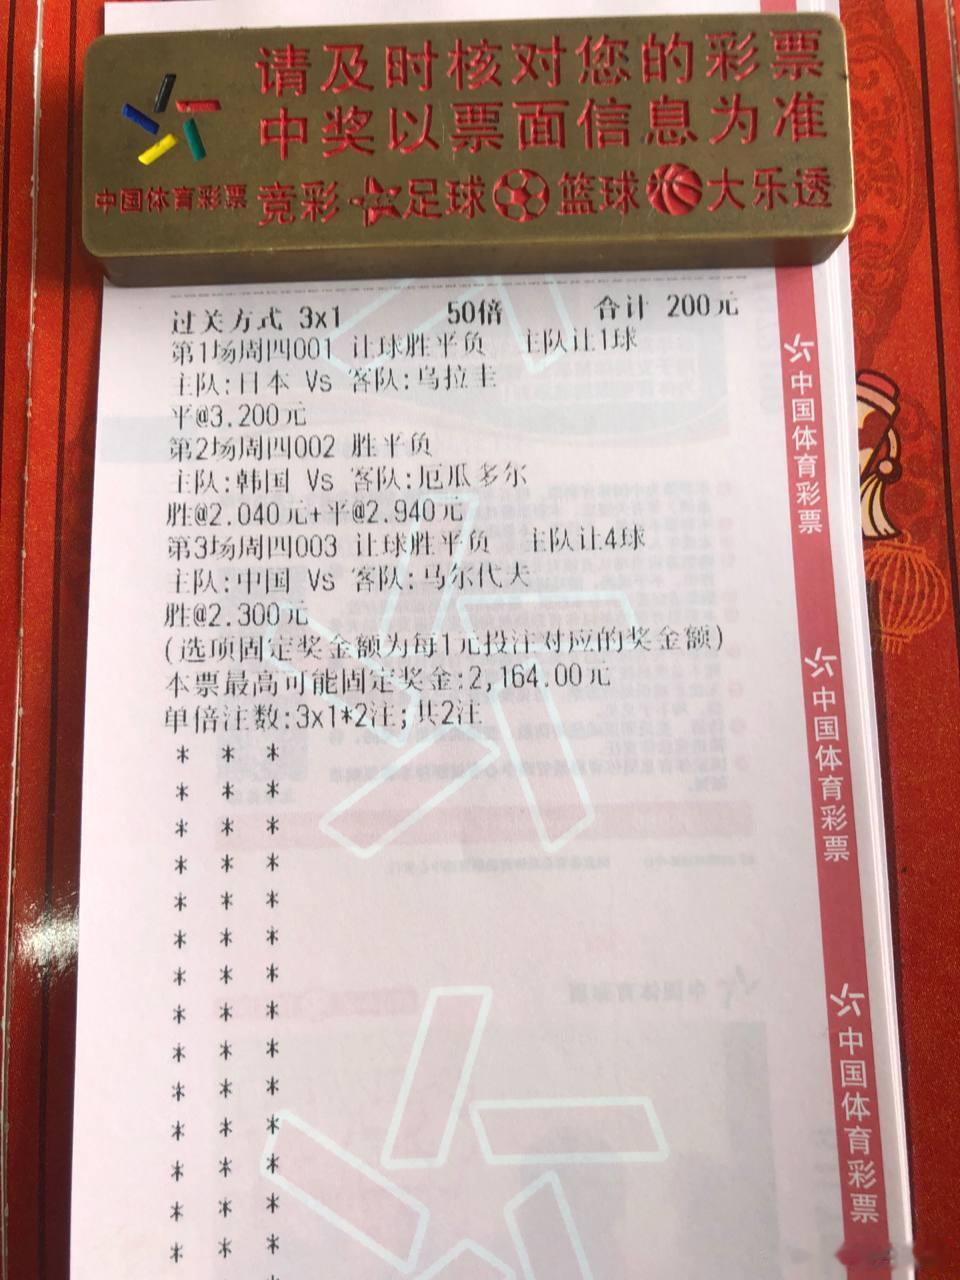 请及时核对您的彩票
中奖以票面信息为准
中国体育彩票 竞彩 足球 篮球 大乐透
过关方式 3x1 50倍 合计 200元
第1场周四001 让球胜平负 主队让1球
主队:日本 Vs 客队:乌拉圭
平@3.200元
第2场周四002 胜平负
主队:韩国 Vs 客队:厄瓜多尔
胜@2.040元+平@2.940元
第3场周四003 让球胜平负 主队让4球
主队:中国 Vs 客队:马尔代夫
胜@2.300元
(选项固定奖金额为每1元投注对应的奖金额)
本票最高可能固定奖金:2,164.00元
单倍注数:3x1*2注;共2注
* * *
* * *
* * *
* * *
* * *
* * *
* * *
* * *
* * *
* * *
* * *
* * *
* * *
* * *
中国体育彩票
中国体育彩票
中国体育彩票